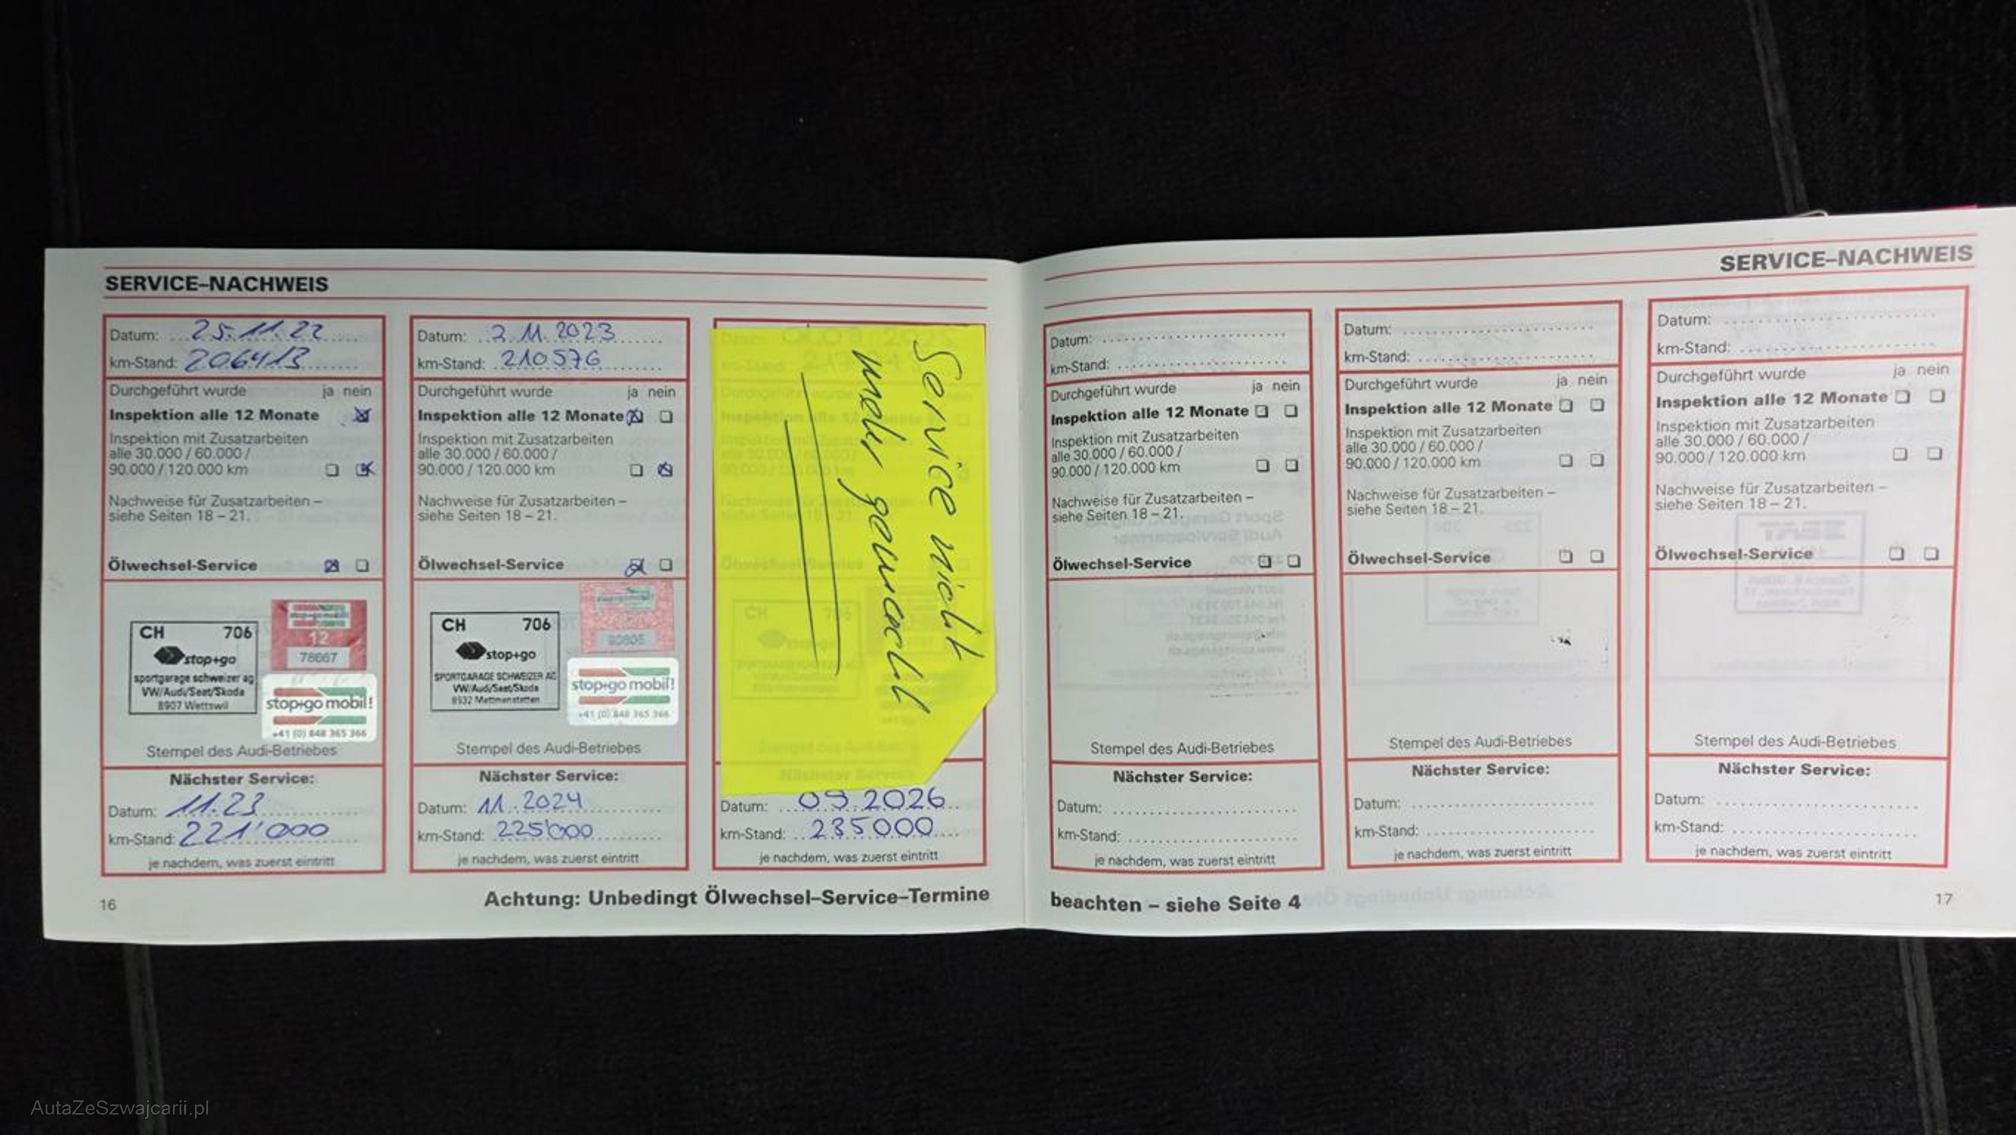 SERVICE–NACHWEIS
Datum: 25.11.22
km-Stand: 206413
Durchgeführt wurde ja nein
Inspektion alle 12 Monate
Inspektion mit Zusatzarbeiten
alle 30.000 / 60.000 /
90.000 / 120.000 km
Nachweise für Zusatzarbeiten –
siehe Seiten 18 – 21.
Ölwechsel-Service
CH 706
stop+go
sportgarage schweizer ag
VW/Audi/Seat/Skoda
8907 Wettswil
12
78667
stop+go mobil!
+41 (0) 848 365 366
Stempel des Audi-Betriebes
Nächster Service:
Datum: 11.23
km-Stand: 221'000
je nachdem, was zuerst eintritt
Datum: 2.11.2023
km-Stand: 210576
Durchgeführt wurde ja nein
Inspektion alle 12 Monate
Inspektion mit Zusatzarbeiten
alle 30.000 / 60.000 /
90.000 / 120.000 km
Nachweise für Zusatzarbeiten –
siehe Seiten 18 – 21.
Ölwechsel-Service
CH 706
stop+go
SPORTGARAGE SCHWEIZER AG
VW/Audi/Seat/Skoda
8932 Mettmenstetten
stop+go mobil!
+41 (0) 848 365 366
Stempel des Audi-Betriebes
Nächster Service:
Datum: 11.2024
km-Stand: 225'000
je nachdem, was zuerst eintritt
Service nicht
mehr gemacht
Datum: 09.2026
km-Stand: 235000
je nachdem, was zuerst eintritt
16
Achtung: Unbedingt Ölwechsel–Service–Termine
SERVICE–NACHWEIS
Datum:
km-Stand:
Durchgeführt wurde ja nein
Inspektion alle 12 Monate
Inspektion mit Zusatzarbeiten
alle 30.000 / 60.000 /
90.000 / 120.000 km
Nachweise für Zusatzarbeiten –
siehe Seiten 18 – 21.
Ölwechsel-Service
Stempel des Audi-Betriebes
Nächster Service:
Datum:
km-Stand:
je nachdem, was zuerst eintritt
Datum:
km-Stand:
Durchgeführt wurde ja nein
Inspektion alle 12 Monate
Inspektion mit Zusatzarbeiten
alle 30.000 / 60.000 /
90.000 / 120.000 km
Nachweise für Zusatzarbeiten –
siehe Seiten 18 – 21.
Ölwechsel-Service
Stempel des Audi-Betriebes
Nächster Service:
Datum:
km-Stand:
je nachdem, was zuerst eintritt
Datum:
km-Stand:
Durchgeführt wurde ja nein
Inspektion alle 12 Monate
Inspektion mit Zusatzarbeiten
alle 30.000 / 60.000 /
90.000 / 120.000 km
Nachweise für Zusatzarbeiten –
siehe Seiten 18 – 21.
Ölwechsel-Service
Stempel des Audi-Betriebes
Nächster Service:
Datum:
km-Stand:
je nachdem, was zuerst eintritt
beachten – siehe Seite 4
17
AutaZeSzwajcarii.pl